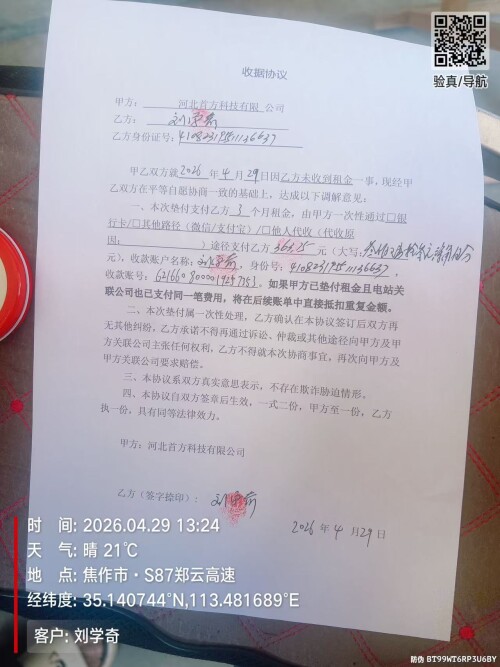 验真/导航
收据协议
甲方: 河北首方科技有限 公司
乙方: 刘
乙方身份证号:
甲乙双方就 2026 年 4 月 29 日因乙方未收到租金一事,现经甲
乙双方在平等自愿协商一致的基础上,达成以下调解意见:
一、本次垫付支付乙方 3 个月租金,由甲方一次性通过□银
行卡/□其他路径(微信/支付宝)/□他人代收(代收原
因: )途径支付乙方 元(大写:
元),收款账户名称:刘 ,身份号: ,
收款账号: 。如果甲方已垫付租金且电站关
联公司也已支付同一笔费用,将在后续账单中直接抵扣重复金额。
二、本次垫付属一次性处理,乙方确认在本协议签订后双方再
无其他纠纷,乙方承诺不得再通过诉讼、仲裁或其他途径向甲方及甲
方关联公司主张任何权利,乙方不得就本次协商事宜,再次向甲方及
甲方关联公司要求赔偿。
三、本协议系双方真实意思表示,不存在欺诈胁迫情形。
四、本协议自双方签章后生效,一式二份,甲方至一份,乙方
执一份,具有同等法律效力。
甲方:河北首方科技有限公司
乙方(签字捺印): 刘
2026 年 4 月 29 日
时 间: 2026.04.29 13:24
天 气: 晴 21℃
地 点: 焦作市·S87郑云高速
经纬度: 35.140744°N,113.481689°E
客户: 刘学奇
防伪 BT99WT6RP3U6BY